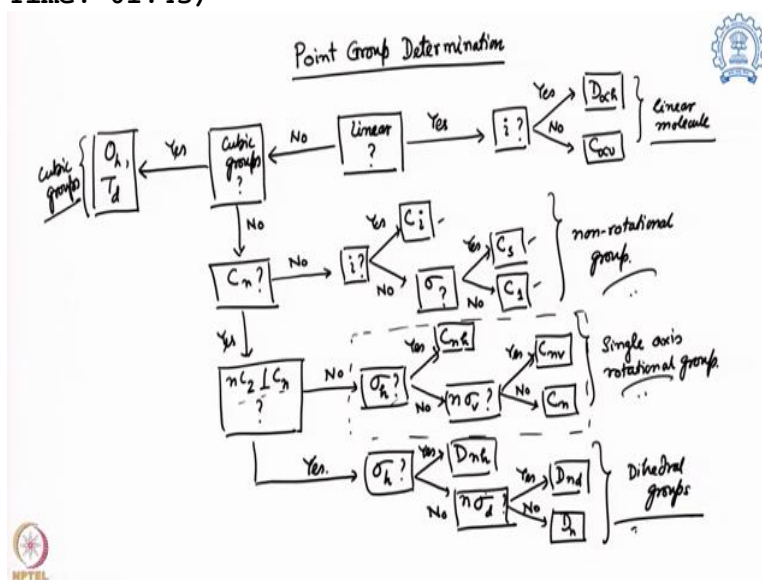 Time: 01:45)
Point Group Determination
Cubic groups
O_h, T_d
Yes
Cubic groups ?
No
linear ?
Yes
i ?
Yes
D∝h
No
C∝v
linear molecule
No
C_n ?
No
i ?
Yes
C_i
No
σ ?
Yes
C_s
No
C_1
non-rotational group.
Yes
nC_2 ⊥ C_n ?
No
σ_h ?
Yes
C_nh
No
nσ_v ?
Yes
C_nv
No
C_n
Single axis rotational group.
Yes.
σ_h ?
Yes
D_nh
No
nσ_d ?
Yes
D_nd
No
D_n
Dihedral groups
NPTEL